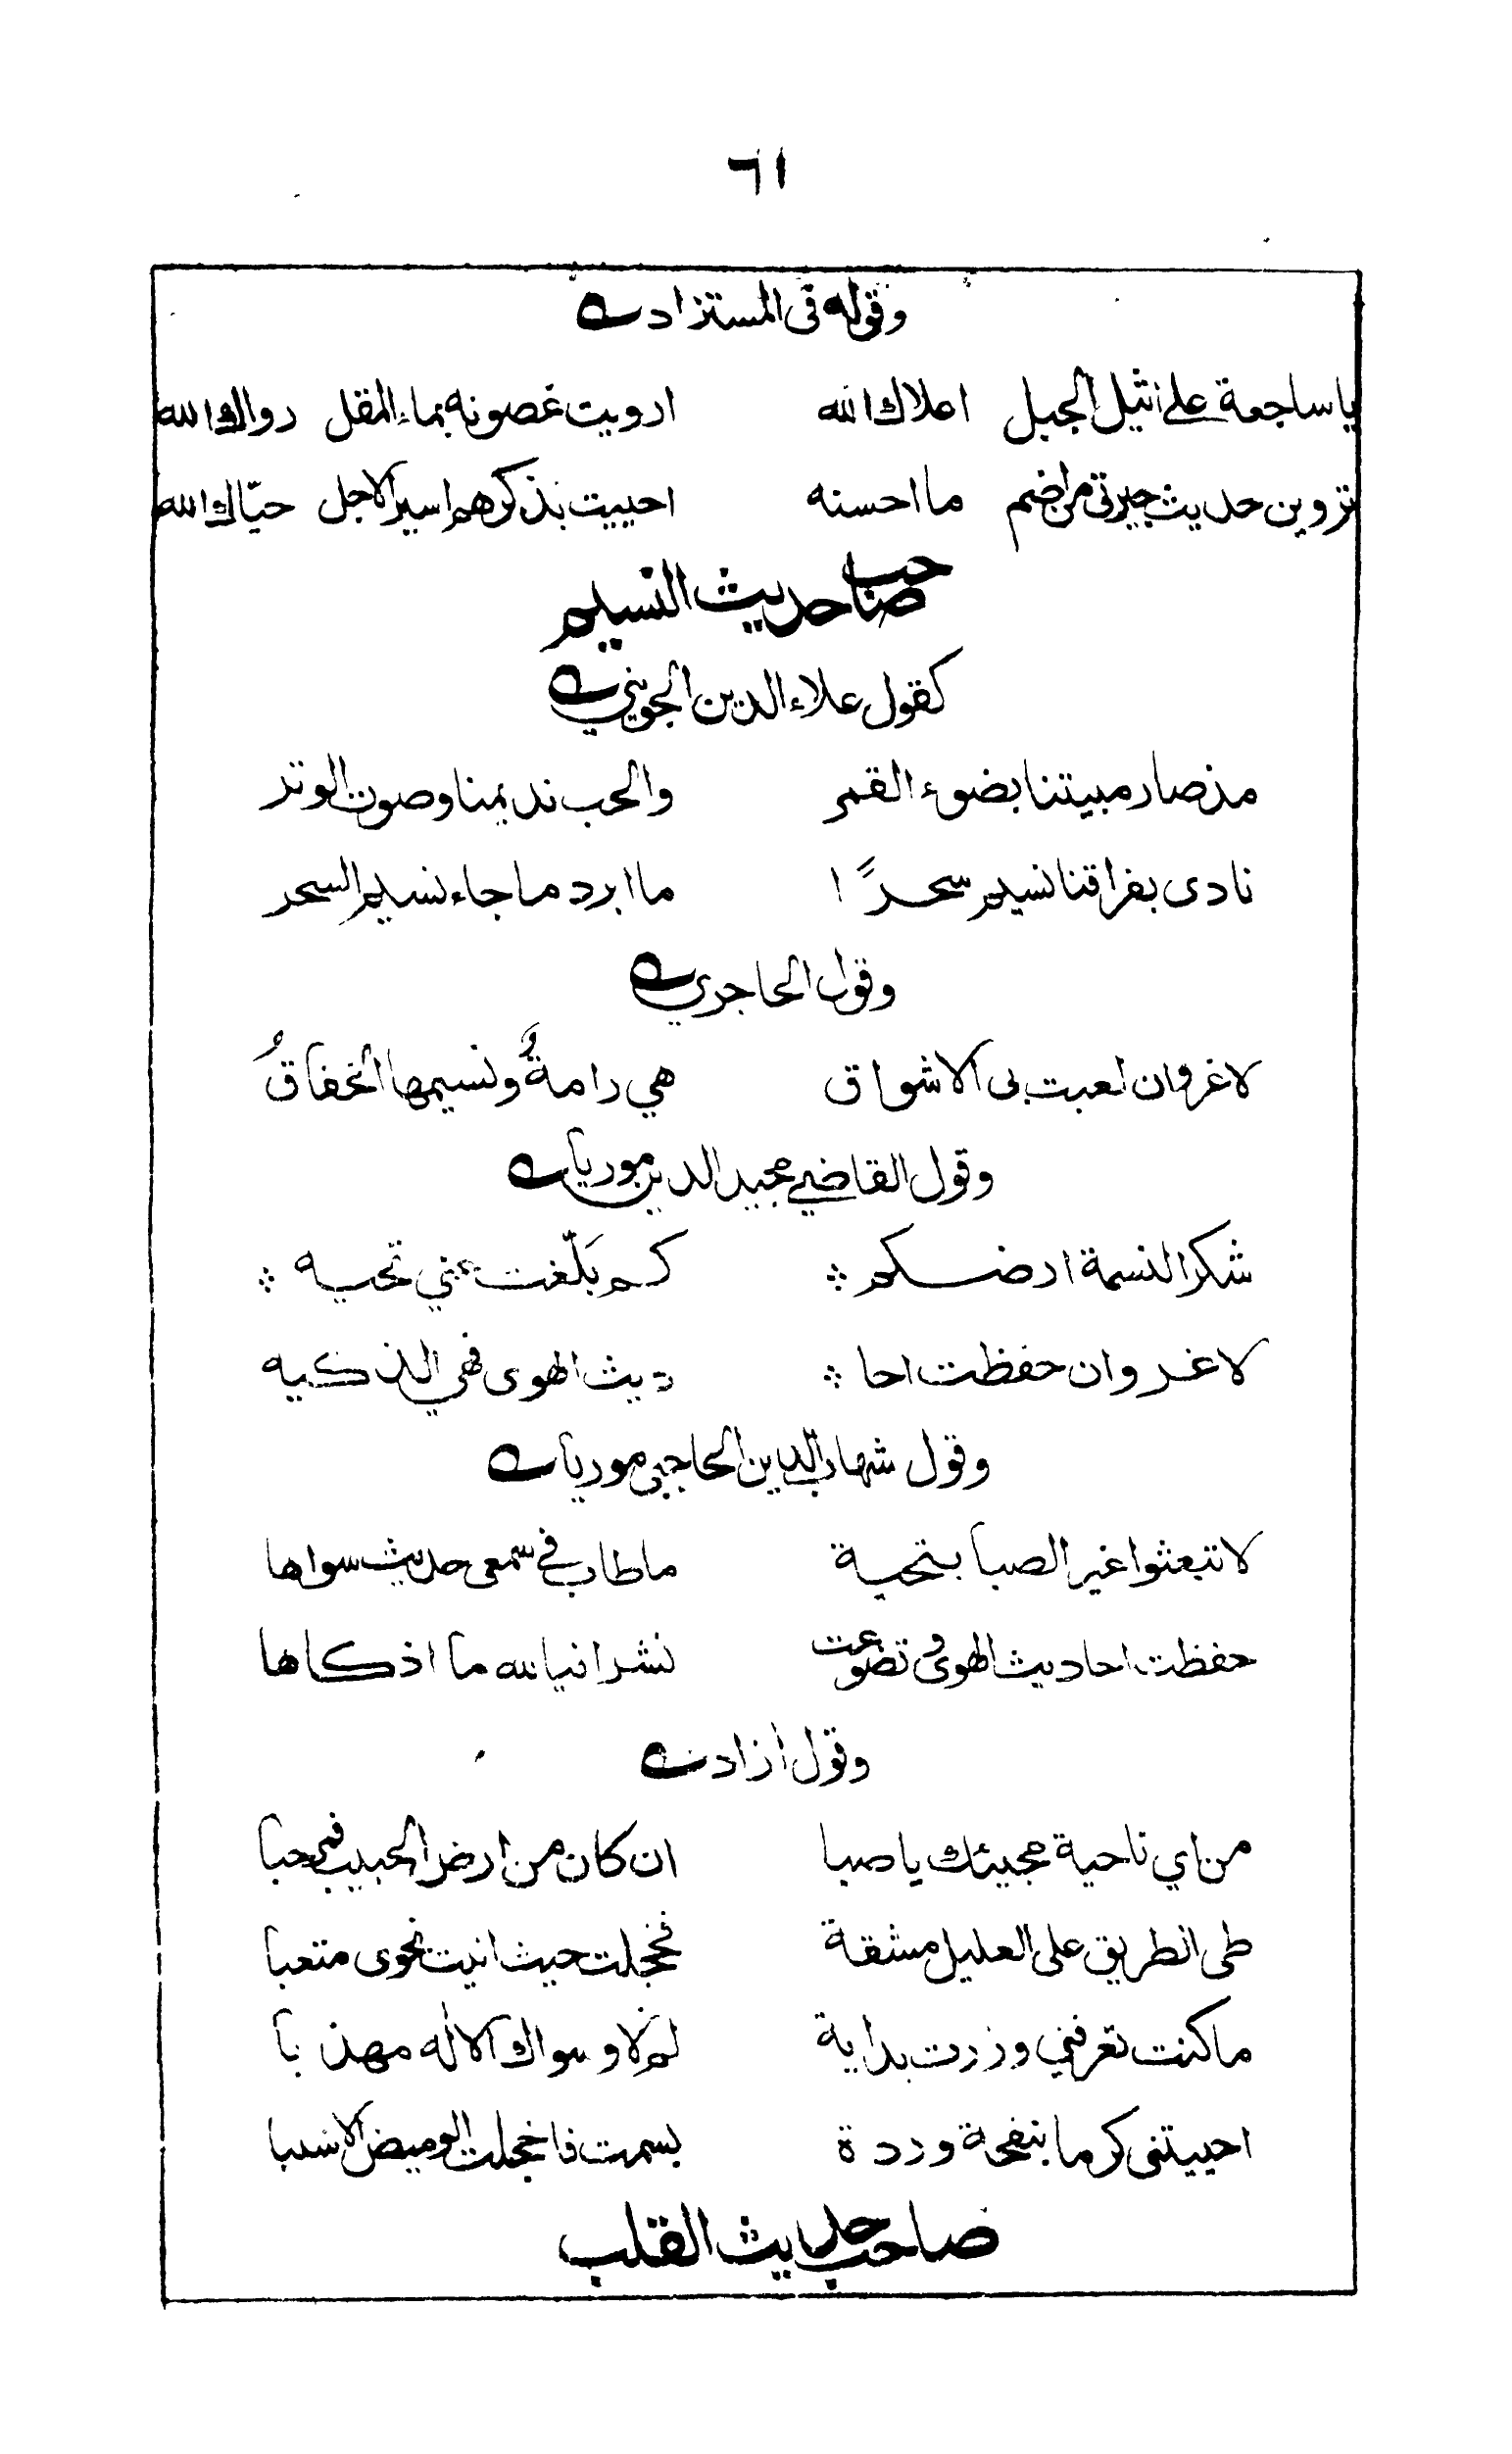 ٦١
وقوله في المستزاد
ياساجعة على اثيل الجبل اعلاك الله ارويت غصونه بماء المقل رواك الله
تروين حديث جيرتى من اضم ما احسنه احييت بذكرهم اسير الاجل حيّاك الله
صاحب حديث النسيم
كقول علاء الدين الجويني
مذ صار مبيتنا بضوء القمر والحب نديمنا وصوت الوتر
نادى بفراقنا نسيم سحرًا ما ابرد ما جاء نسيم السحر
وقول الحاجري
لا غرو ان لعبت بى الاشواق هي رامةٌ ونسيمها الخفاقُ
وقول القاضي مجير الدين موريا
شكرا لنسمة ارضكم ؞ كم بَلّغت عني تحيه ؞
لا غرو ان حفظت احا ؞ ديث الهوى فهي الذكيه
وقول شهاب الدين الحاجبي موريا
لا تبعثوا غير الصبا بتحية ما طاب في سمعي حديث سواها
حفظت احاديث الهوى وتضوعت نشرا فيالله ما اذكاها
وقول ازاد
من اي ناحية مجيئك يا صبا ان كان من ارض الحبيب فمرحبا
طى الطريق على العليل مشقة فخجلت حيث اتيت نحوى متعبا
ما كنت تعرفني وزرت بداية لم لا وسواك الاله مهذبا
احييتنى كرما بنفحة وردة بسمت فاخجلت الوميض الاشنبا
صاحب حديث القلب